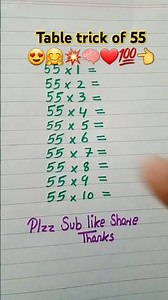 Table trick of 55
😍🤗💥🧠❤️💯👈
55 x 1 =
55 x 2 =
55 x 3 =
55 x 4 =
55 x 5 =
55 x 6 =
55 x 7 =
55 x 8 =
55 x 9 =
55 x 10 =
Plzz Sub like Share
Thanks